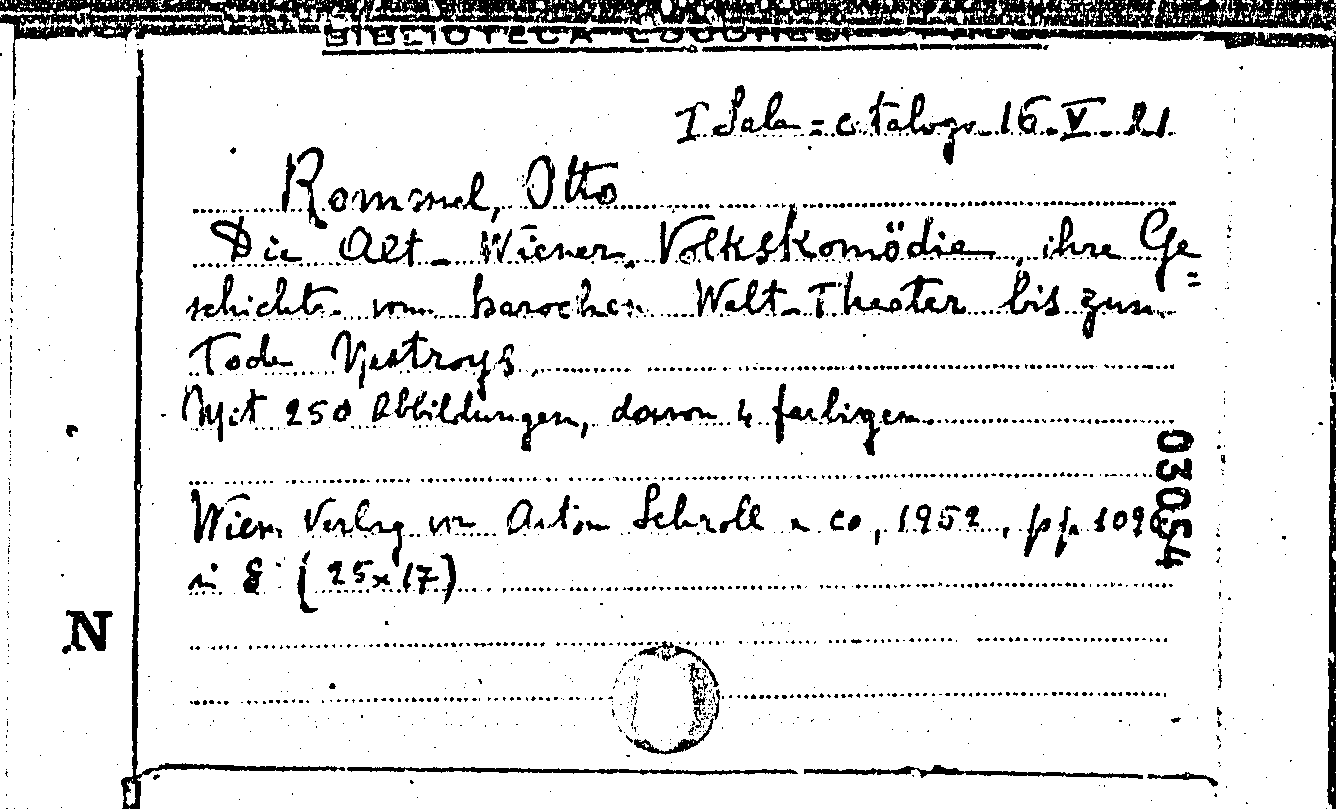 BIBLIOTECA
I Sala = catalogo 16. V. 21
Rommel, Otto
Die Alt-Wiener Volkskomödie, ihre Ge=
schichte vom barocken Welt-Theater bis zum
Tode Nestroys.
Mit 250 Abbildungen, davon 4 farbigen.
03054
Wien Verlag von Anton Schroll u co, 1952, pp. 1096
in 8° (25x17)
N